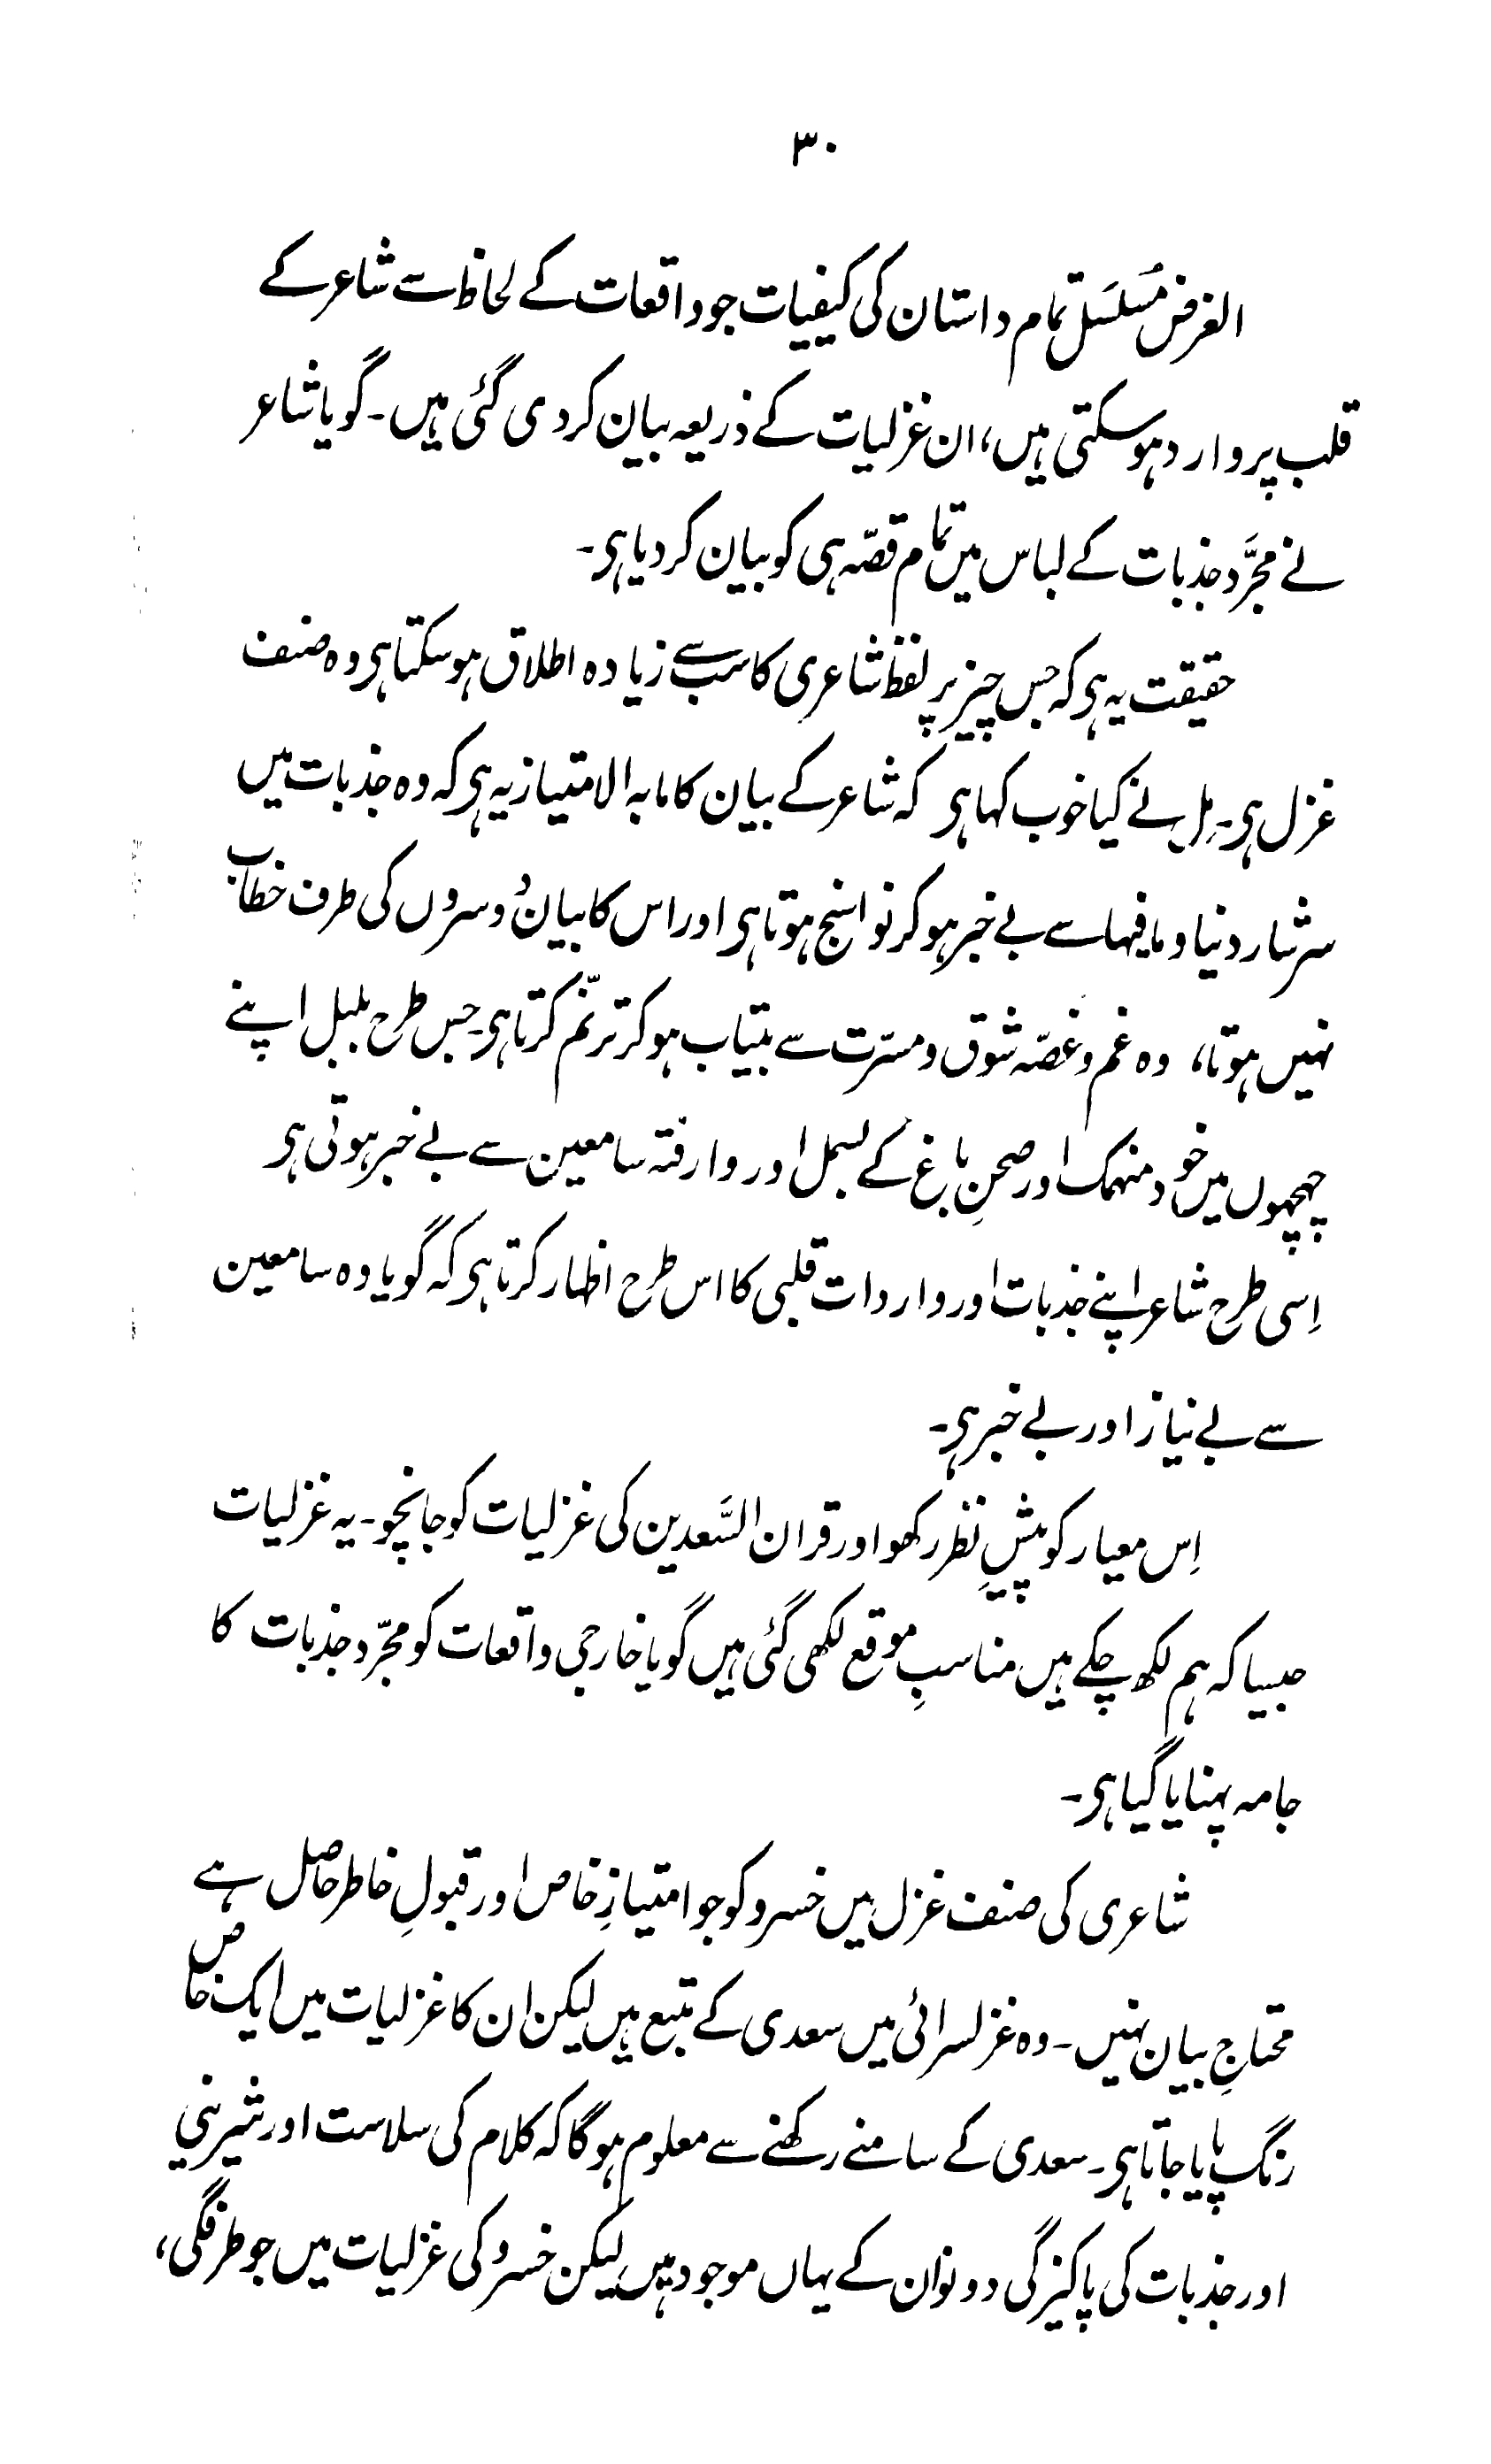 ۳۰
الغرض مُسلسَل تمام داستان کی کیفیات جو واقعات کے لحاظ سے شاعر کے
قلب پر وارد ہو سکتی ہیں، ان غزلیات کے ذریعہ بیان کر دی گئی ہیں۔ گویا شاعر
نے مجرَّد جذبات کے لباس میں تمام قصّہ ہی کو بیان کر دیا ہی۔
حقیقت یہ ہی کہ جس چیز پر لفظ شاعری کا سب سے زیادہ اطلاق ہو سکتا ہی وہ صنف
غزل ہی۔ مِل نے کیا خوب کہا ہی کہ شاعر کے بیان کا مابہ الامتیاز یہ ہی کہ وہ جذبات میں
سرشار دنیا و مافیہا سے بے خبر ہو کر نواسنج ہوتا ہی اور اس کا بیان دُوسروں کی طرف خطاب
نہیں ہوتا، وہ غم و غصّہ شوق و مسرّت سے بیتاب ہو کر ترنّم کرتا ہی۔ جس طرح بلبل اپنے
چہچہوں میں خود منہمک اور صحنِ باغ کے بسمل اور وارفتہ سامعین سے بے خبر ہوتی ہی
اِسی طرح شاعر اپنے جذبات اور واردات قلبی کا اس طرح اظہار کرتا ہی کہ گویا وہ سامعین
سے بے نیاز اور بے خبر ہی۔
اِس معیار کو پیشِ نظر رکھو اور قران السَّعدین کی غزلیات کو جانچو۔ یہ غزلیات
جیسا کہ ہم لکھ چکے ہیں مناسبِ موقع لکھی گئی ہیں گویا خارجی واقعات کو مجرّد جذبات کا
جامہ پہنایا گیا ہی۔
شاعری کی صنف غزل میں خسرو کو جو امتیازِ خاص اور قبولِ خاطر حاصل ہے
محتاجِ بیان نہیں۔ وہ غزلسرائی میں سعدی کے متبع ہیں لیکن ان کا غزلیات میں ایک خاص
رنگ پایا جاتا ہی۔ سعدی کے سامنے رکھنے سے معلوم ہوگا کہ کلام کی سلاست اور شیرینی
اور جذبات کی پاکیزگی دونوان کے یہاں موجود ہیں لیکن خسرو کی غزلیات میں جو طرفگی،